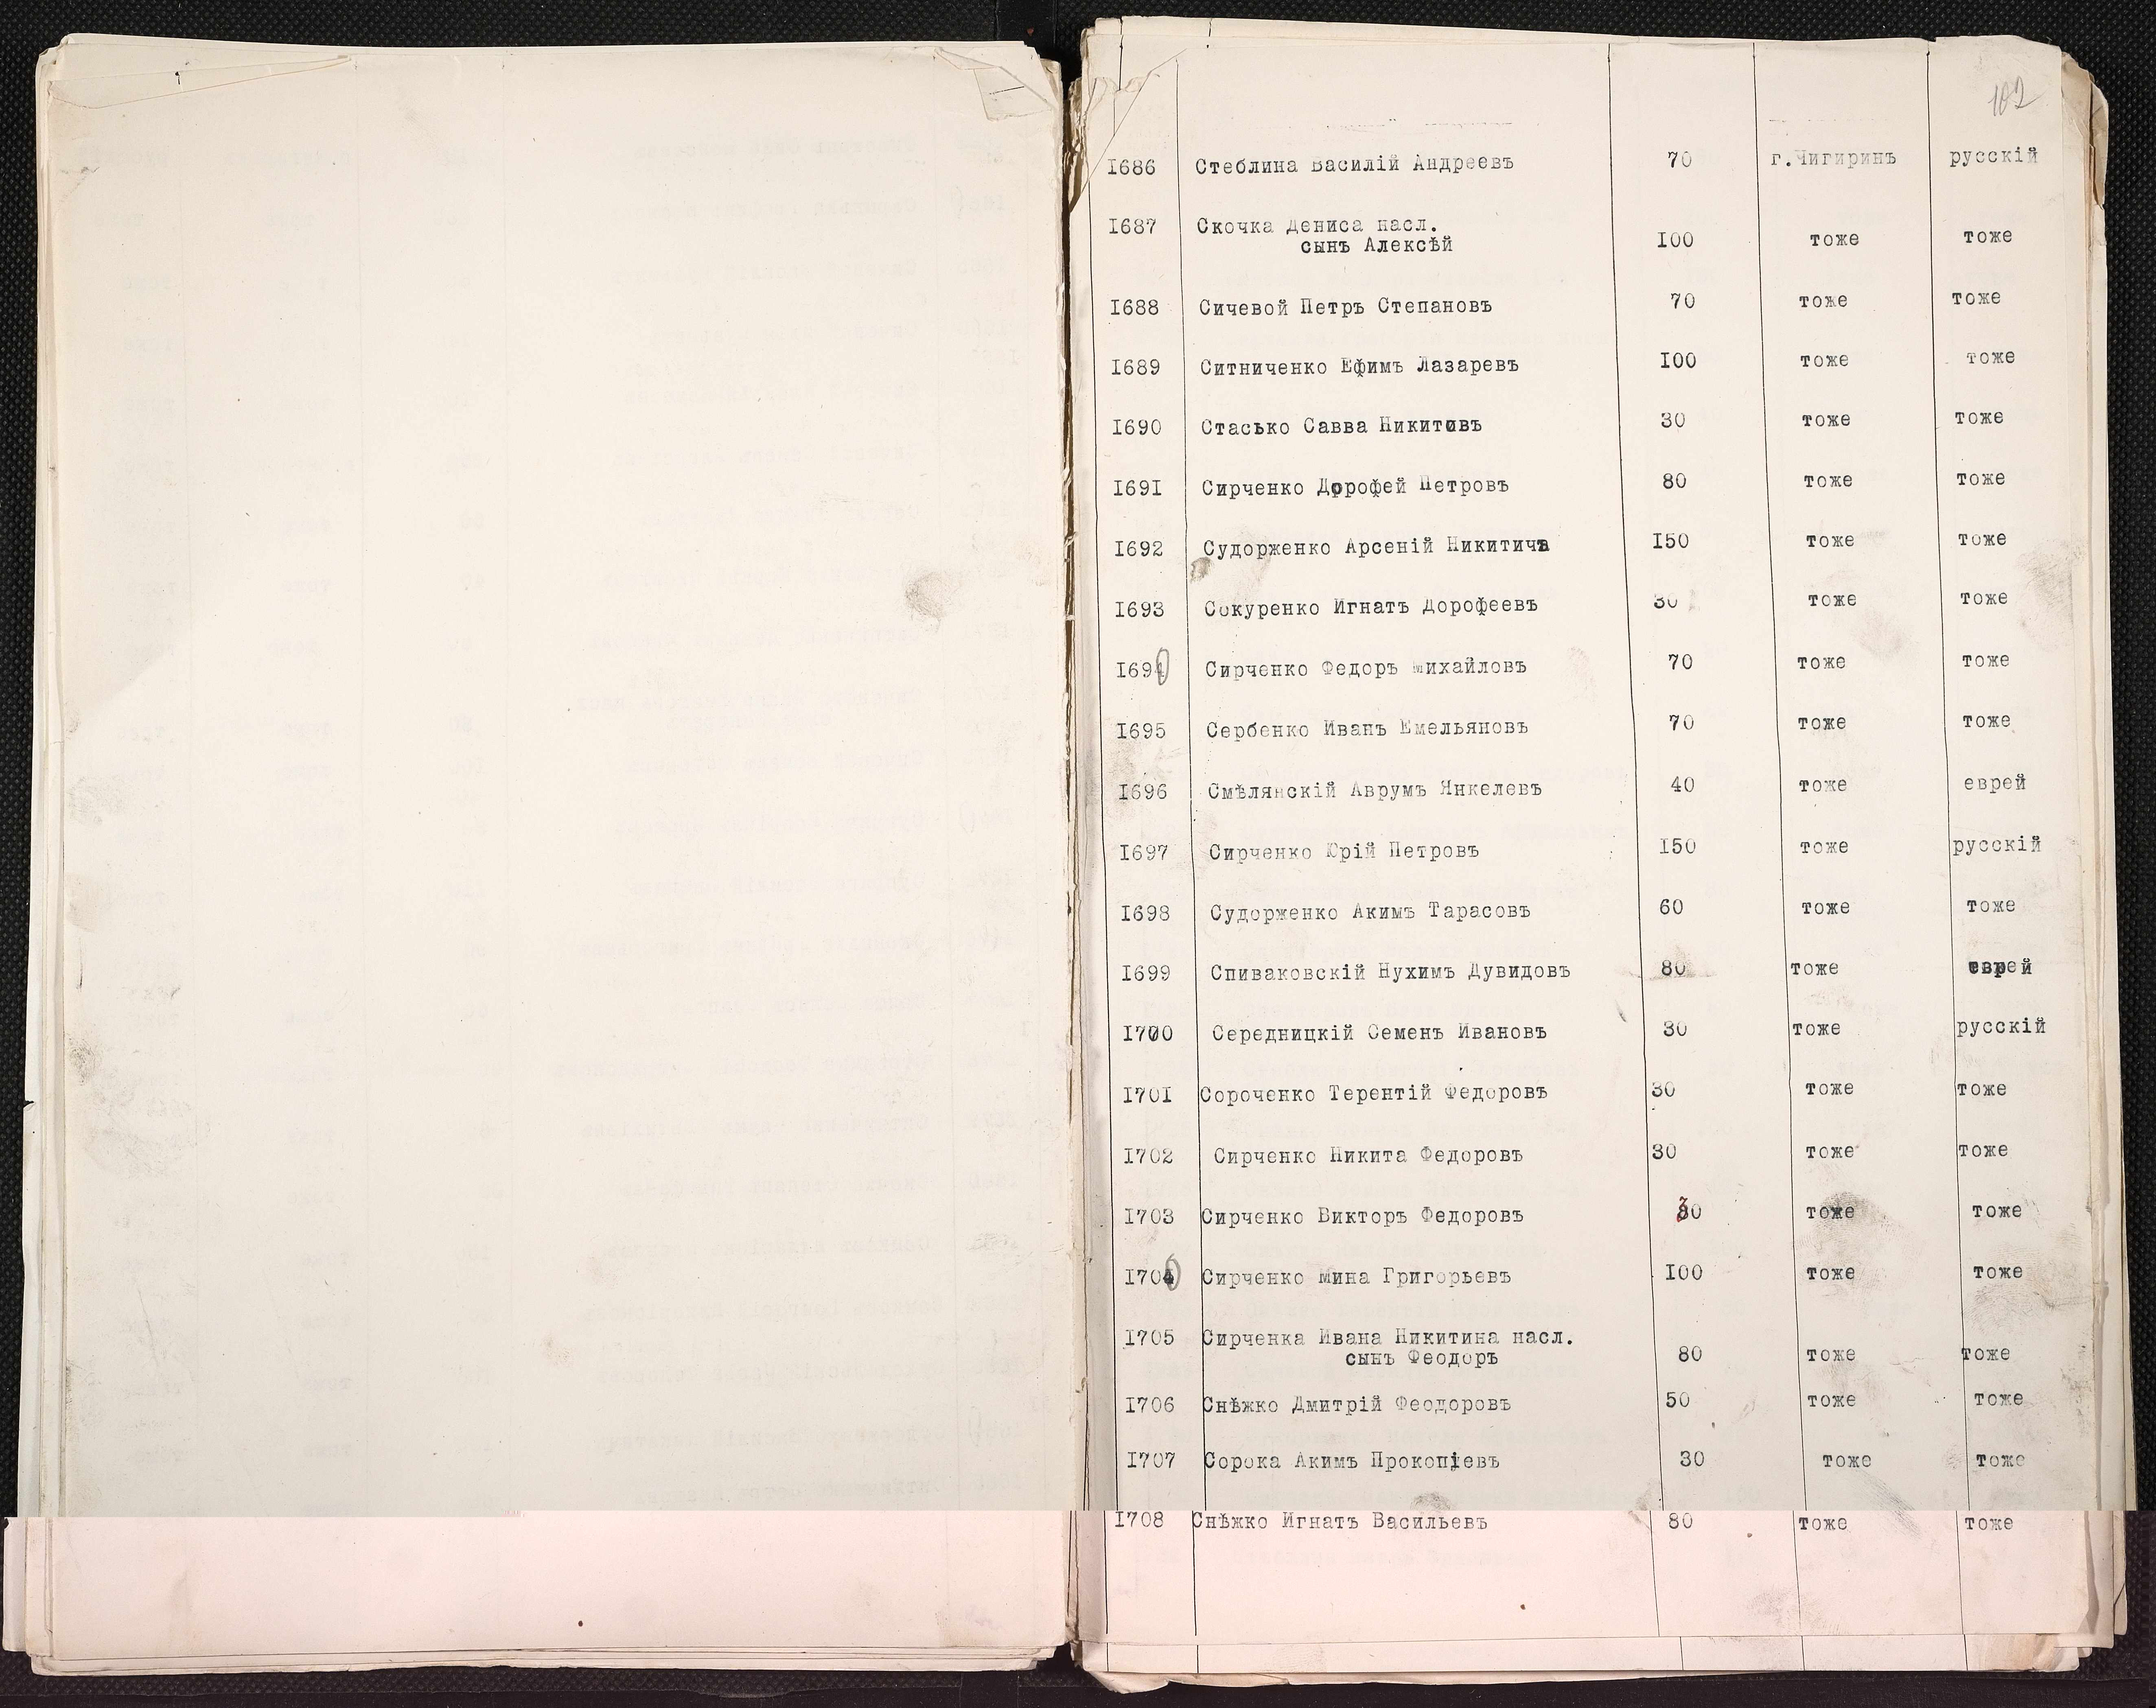 102
1686 Стеблина Василій Андреевъ 70 г.Чигиринъ русскій
1687 Скочка Дениса насл.
сынъ Алексѣй 100 тоже тоже
1688 Сичевой Петръ Степановъ 70 тоже тоже
1689 Ситниченко Ефимъ Лазаревъ 100 тоже тоже
1690 Стасько Савва Никитовъ 30 тоже тоже
1691 Сирченко Дорофей Петровъ 80 тоже тоже
1692 Судорженко Арсеній Никитичъ 150 тоже тоже
1693 Сокуренко Игнатъ Дорофеевъ 30 тоже тоже
1694 Сирченко Федоръ Михайловъ 70 тоже тоже
1695 Сербенко Иванъ Емельяновъ 70 тоже тоже
1696 Смѣлянскій Аврумъ Янкелевъ 40 тоже еврей
1697 Сирченко Юрій Петровъ 150 тоже русскій
1698 Судорженко Акимъ Тарасовъ 60 тоже тоже
1699 Спиваковскій Нухимъ Дувидовъ 80 тоже еврей
1700 Середницкій Семенъ Ивановъ 30 тоже русскій
1701 Сороченко Терентій Федоровъ 30 тоже тоже
1702 Сирченко Никита Федоровъ 30 тоже тоже
1703 Сирченко Викторъ Федоровъ 30 тоже тоже
1704 Сирченко Мина Григорьевъ 100 тоже тоже
1705 Сирченка Ивана Никитина насл.
сынъ Феодоръ 80 тоже тоже
1706 Снѣжко Дмитрій Феодоровъ 50 тоже тоже
1707 Сорока Акимъ Прокопіевъ 30 тоже тоже
1708 Снѣжко Игнатъ Васильевъ 80 тоже тоже